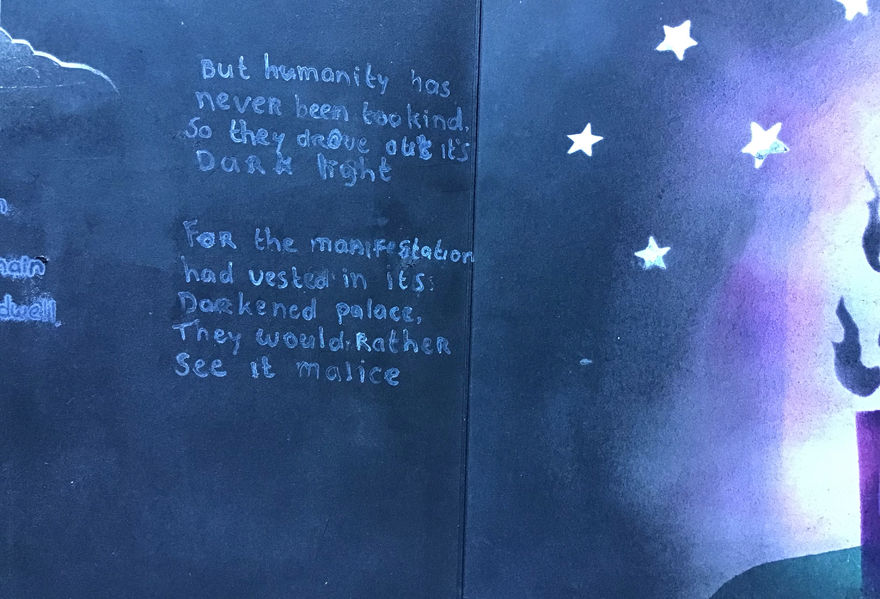 main
dwell
But humanity has
never been too kind,
So they drove out it's
Dark light
For the manifestation
had vested in it's:
Darkened palace,
They would Rather
See it malice